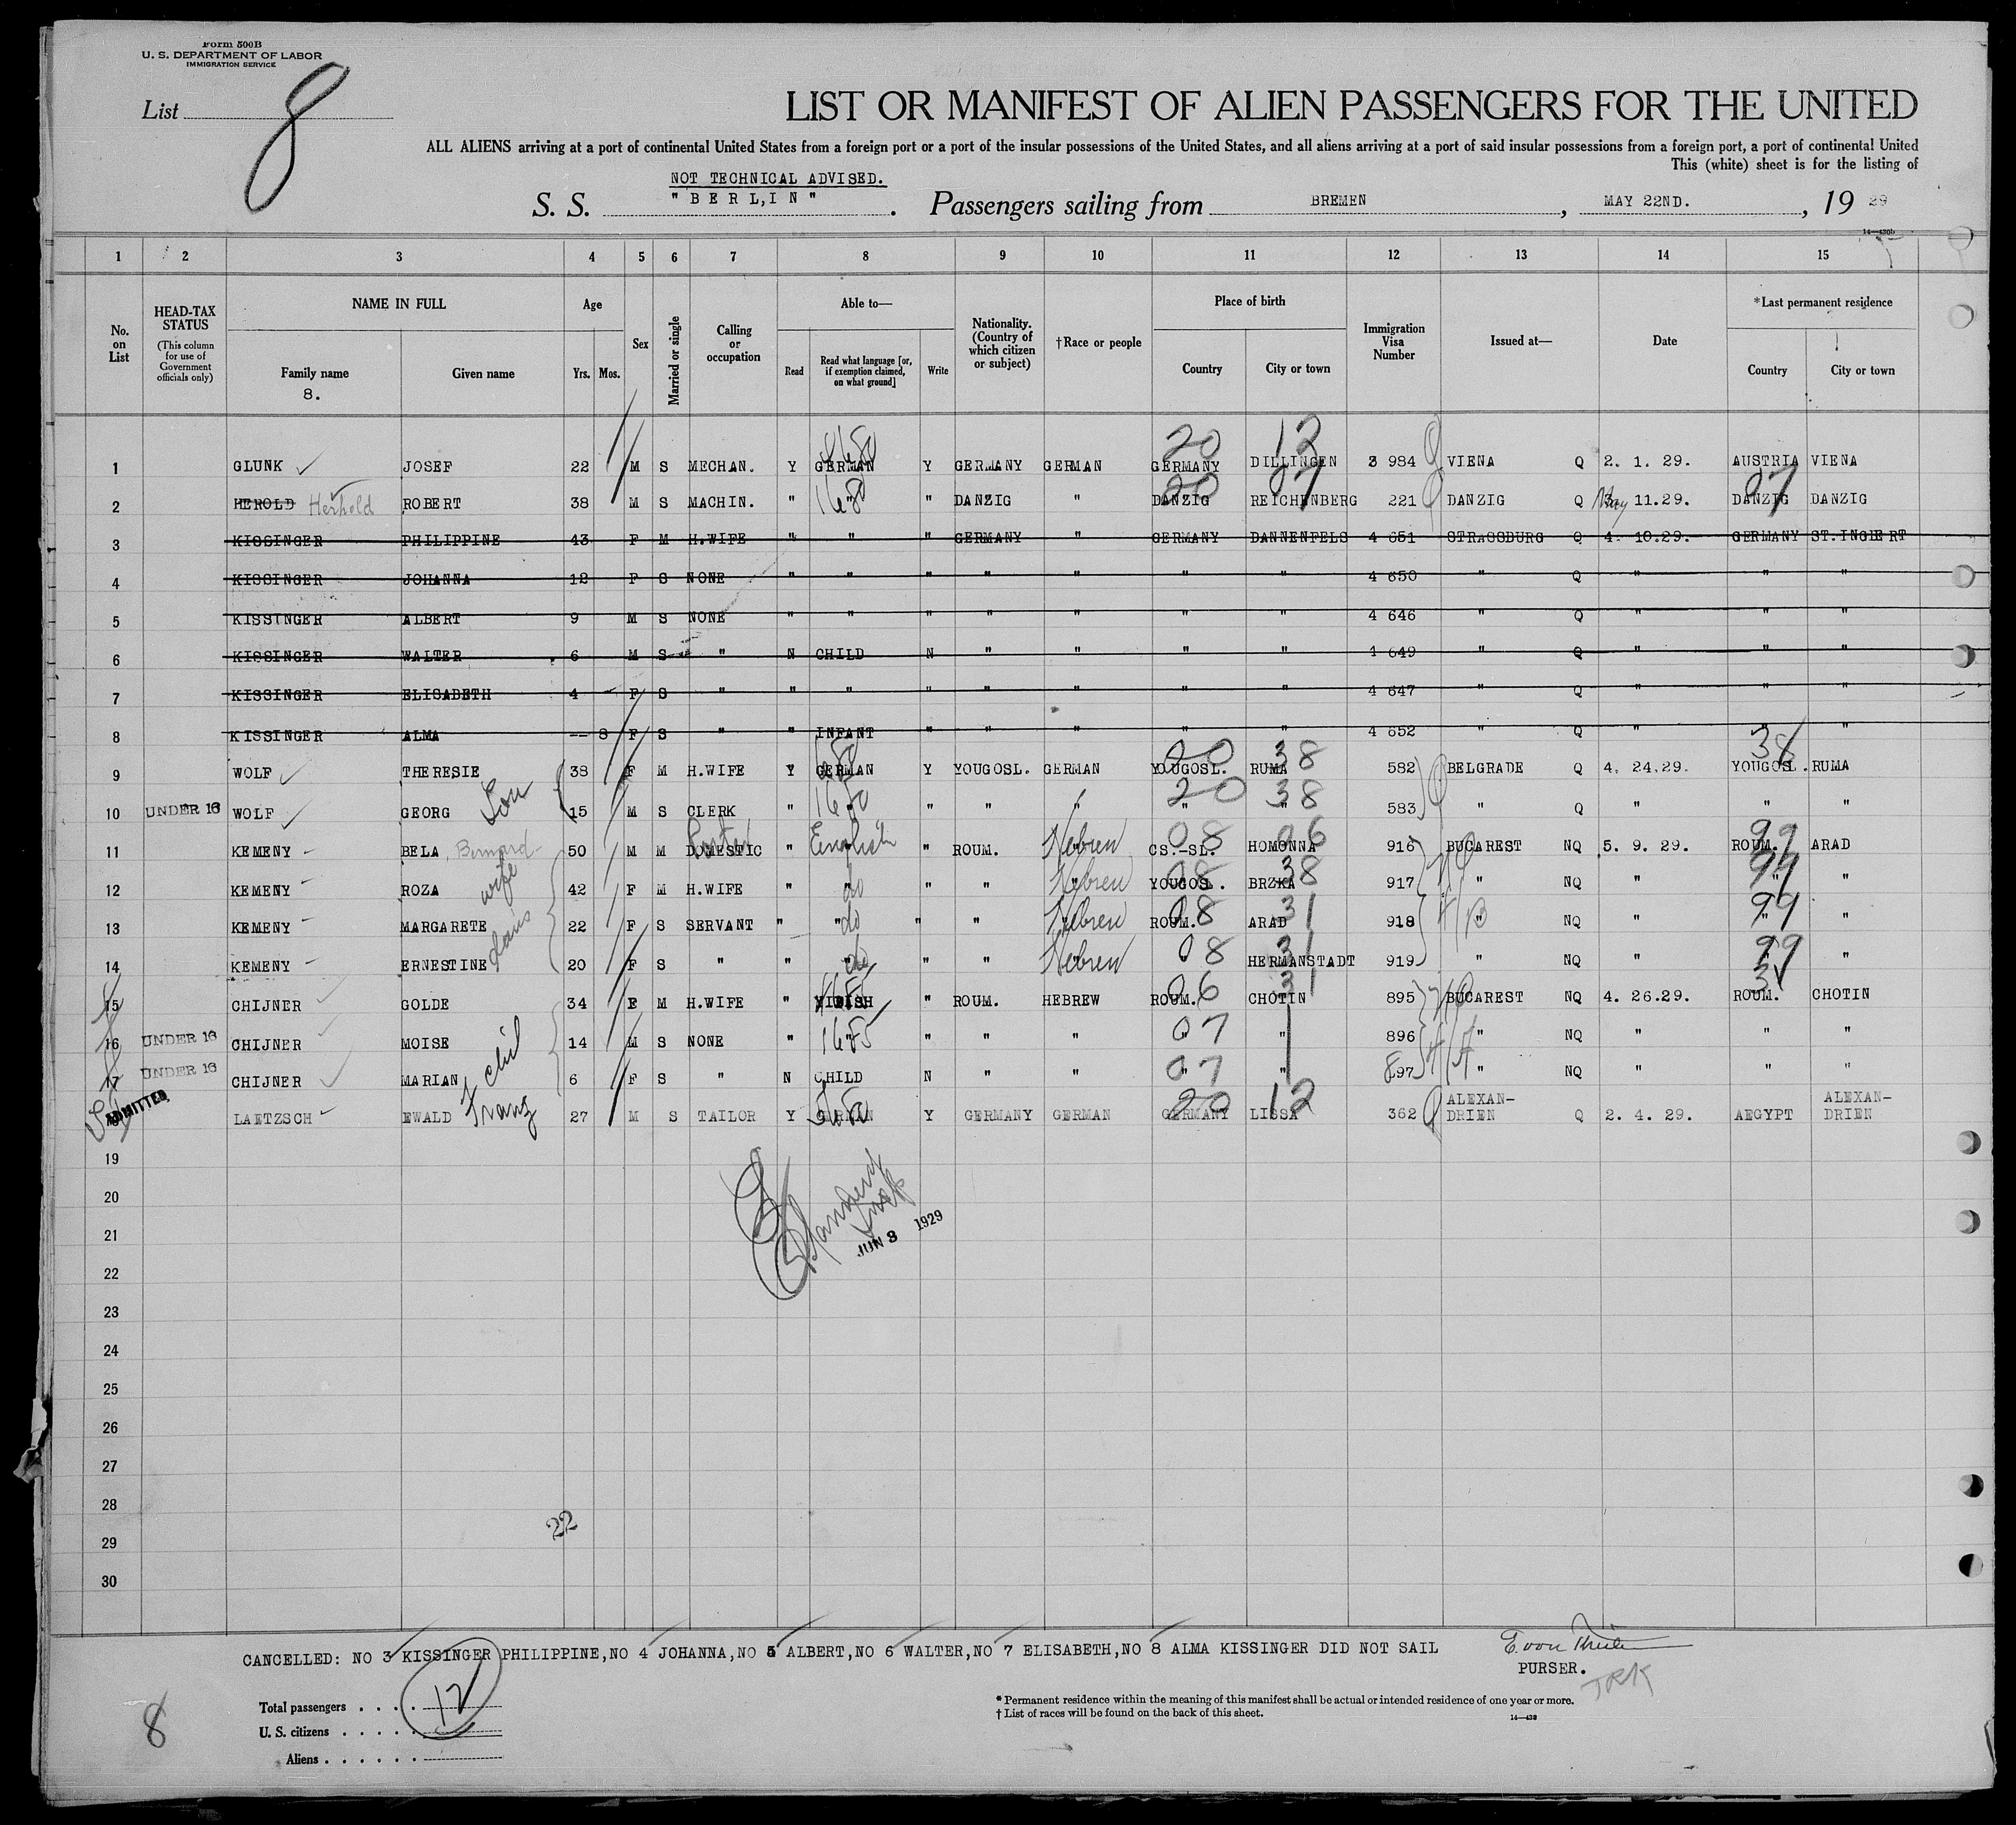 Form 500B
U. S. DEPARTMENT OF LABOR
IMMIGRATION SERVICE
List 8
LIST OR MANIFEST OF ALIEN PASSENGERS FOR THE UNITED
ALL ALIENS arriving at a port of continental United States from a foreign port or a port of the insular possessions of the United States, and all aliens arriving at a port of said insular possessions from a foreign port, a port of continental United
This (white) sheet is for the listing of
NOT TECHNICAL ADVISED.
S. S. "BERL,IN". Passengers sailing from BREMEN, MAY 22ND., 19 29
14—430b
1 2 3 4 5 6 7 8 9 10 11 12 13 14 15
No. on List
HEAD-TAX STATUS (This column for use of Government officials only)
NAME IN FULL Family name Given name
8.
Age Yrs. Mos.
Sex
Married or single
Calling or occupation
Able to— Read Read what language [or, if exemption claimed, on what ground] Write
Nationality. (Country of which citizen or subject)
†Race or people
Place of birth Country City or town
Immigration Visa Number
Issued at—
Date
*Last permanent residence Country City or town
20 12
1 GLUNK JOSEF 22 M S MECHAN. Y GERMAN Y GERMANY GERMAN GERMANY DILLINGEN 3 984 VIENA Q 2. 1. 29. AUSTRIA VIENA
20 07 07
2 HEROLD Herhold ROBERT 38 M S MACHIN. " " 168 " DANZIG " DANZIG REICHENBERG 221 DANZIG Q May 11.29. DANZIG DANZIG
3 KISSINGER PHILIPPINE 43 F M H.WIFE " " " GERMANY " GERMANY DANNENFELS 4 651 STRASSBURG Q 4. 10.29. GERMANY ST.INGBERT
4 KISSINGER JOHANNA 12 F S NONE " " " " " " " 4 650 " Q " " "
5 KISSINGER ALBERT 9 M S NONE " " " " " " " 4 646 " Q " " "
6 KISSINGER WALTER 6 M S " N CHILD N " " " " 4 649 " Q " " "
7 KISSINGER ELISABETH 4 F S " " " " " " " " 4 647 " Q " " "
8 KISSINGER ALMA -- 8 F S " " INFANT " " " " " 4 652 " Q " " "
20 38 38
9 WOLF THERESIE 38 F M H.WIFE Y GERMAN Y YOUGOSL. GERMAN YOUGOSL. RUMA 582 BELGRADE Q 4. 24.29. YOUGOSL. RUMA
20 38
10 UNDER 16 WOLF GEORG Son 15 M S CLERK " " " " " " " 583 " Q " " "
08 06 99
11 KEMENY BELA Bernard 50 M M DOMESTIC " English " ROUM. Hebrew CS.-SL. HOMONNA 916 BUCAREST NQ 5. 9. 29. ROUM. ARAD
08 38 99
12 KEMENY ROZA wife 42 F M H.WIFE " do " " Hebrew YOUGOSL. BRZKA 917 " NQ " " "
08 31 99
13 KEMENY MARGARETE 22 F S SERVANT " do " " Hebrew ROUM. ARAD 918 " NQ " " "
08 31 99
14 KEMENY ERNESTINE 20 F S " " do " " Hebrew " HERMANSTADT 919 " NQ " " "
06 31 31
15 CHIJNER GOLDE 34 F M H.WIFE " YIDISH " ROUM. HEBREW ROUM. CHOTIN 895 BUCAREST NQ 4. 26.29. ROUM. CHOTIN
07
16 UNDER 16 CHIJNER MOISE 14 M S NONE " " 1685 " " " " " 896 " NQ " " "
07
17 UNDER 16 CHIJNER MARIAN 6 F S " N CHILD N " " " " 897 " NQ " " "
20 12
ADMITTED LAETZSCH EWALD Franz 27 M S TAILOR Y GERMAN Y GERMANY GERMAN GERMANY LISSA 362 ALEXAN-DRIEN Q 2. 4. 29. AEGYPT ALEXAN-DRIEN
19
20
21
JUN 3 1929
22
23
24
25
26
27
28
22
29
30
CANCELLED: NO 3 KISSINGER PHILIPPINE,NO 4 JOHANNA,NO 5 ALBERT,NO 6 WALTER,NO 7 ELISABETH,NO 8 ALMA KISSINGER DID NOT SAIL
PURSER.
JRK
Total passengers . . . . 12
U. S. citizens . . . . .
Aliens . . . . . .
8
* Permanent residence within the meaning of this manifest shall be actual or intended residence of one year or more.
† List of races will be found on the back of this sheet.
14—430